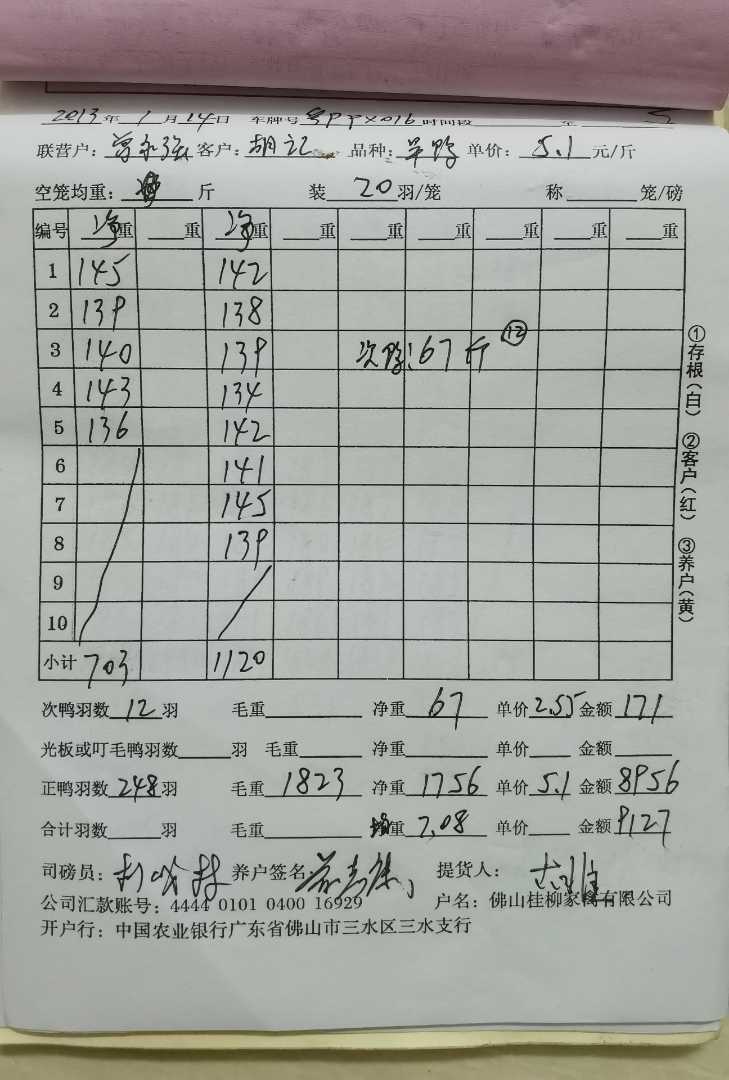 2013年1月14日 车牌号 时间段 至
联营户： 客户：胡记 品种： 单价：5.1元/斤
空笼均重： 斤 装20羽/笼 称 笼/磅
编号 净重 重 净重 重 重 重 重 重 重
1 145 142
2 139 138
3 140 139 次鸭：67斤 ⑫
4 143 134
5 136 142
6 141
7 145
8 139
9
10
小计 703 1120
①存根（白） ②客户（红） ③养户（黄）
次鸭羽数12羽 毛重 净重67 单价2.55金额171
光板或叮毛鸭羽数 羽 毛重 净重 单价 金额
正鸭羽数248羽 毛重1823 净重1756 单价5.1金额8956
合计羽数 羽 毛重 均重7.08 单价 金额9127
司磅员： 养户签名： 提货人：
公司汇款账号：4444 0101 0400 16929 户名：佛山桂柳家禽有限公司
开户行：中国农业银行广东省佛山市三水区三水支行